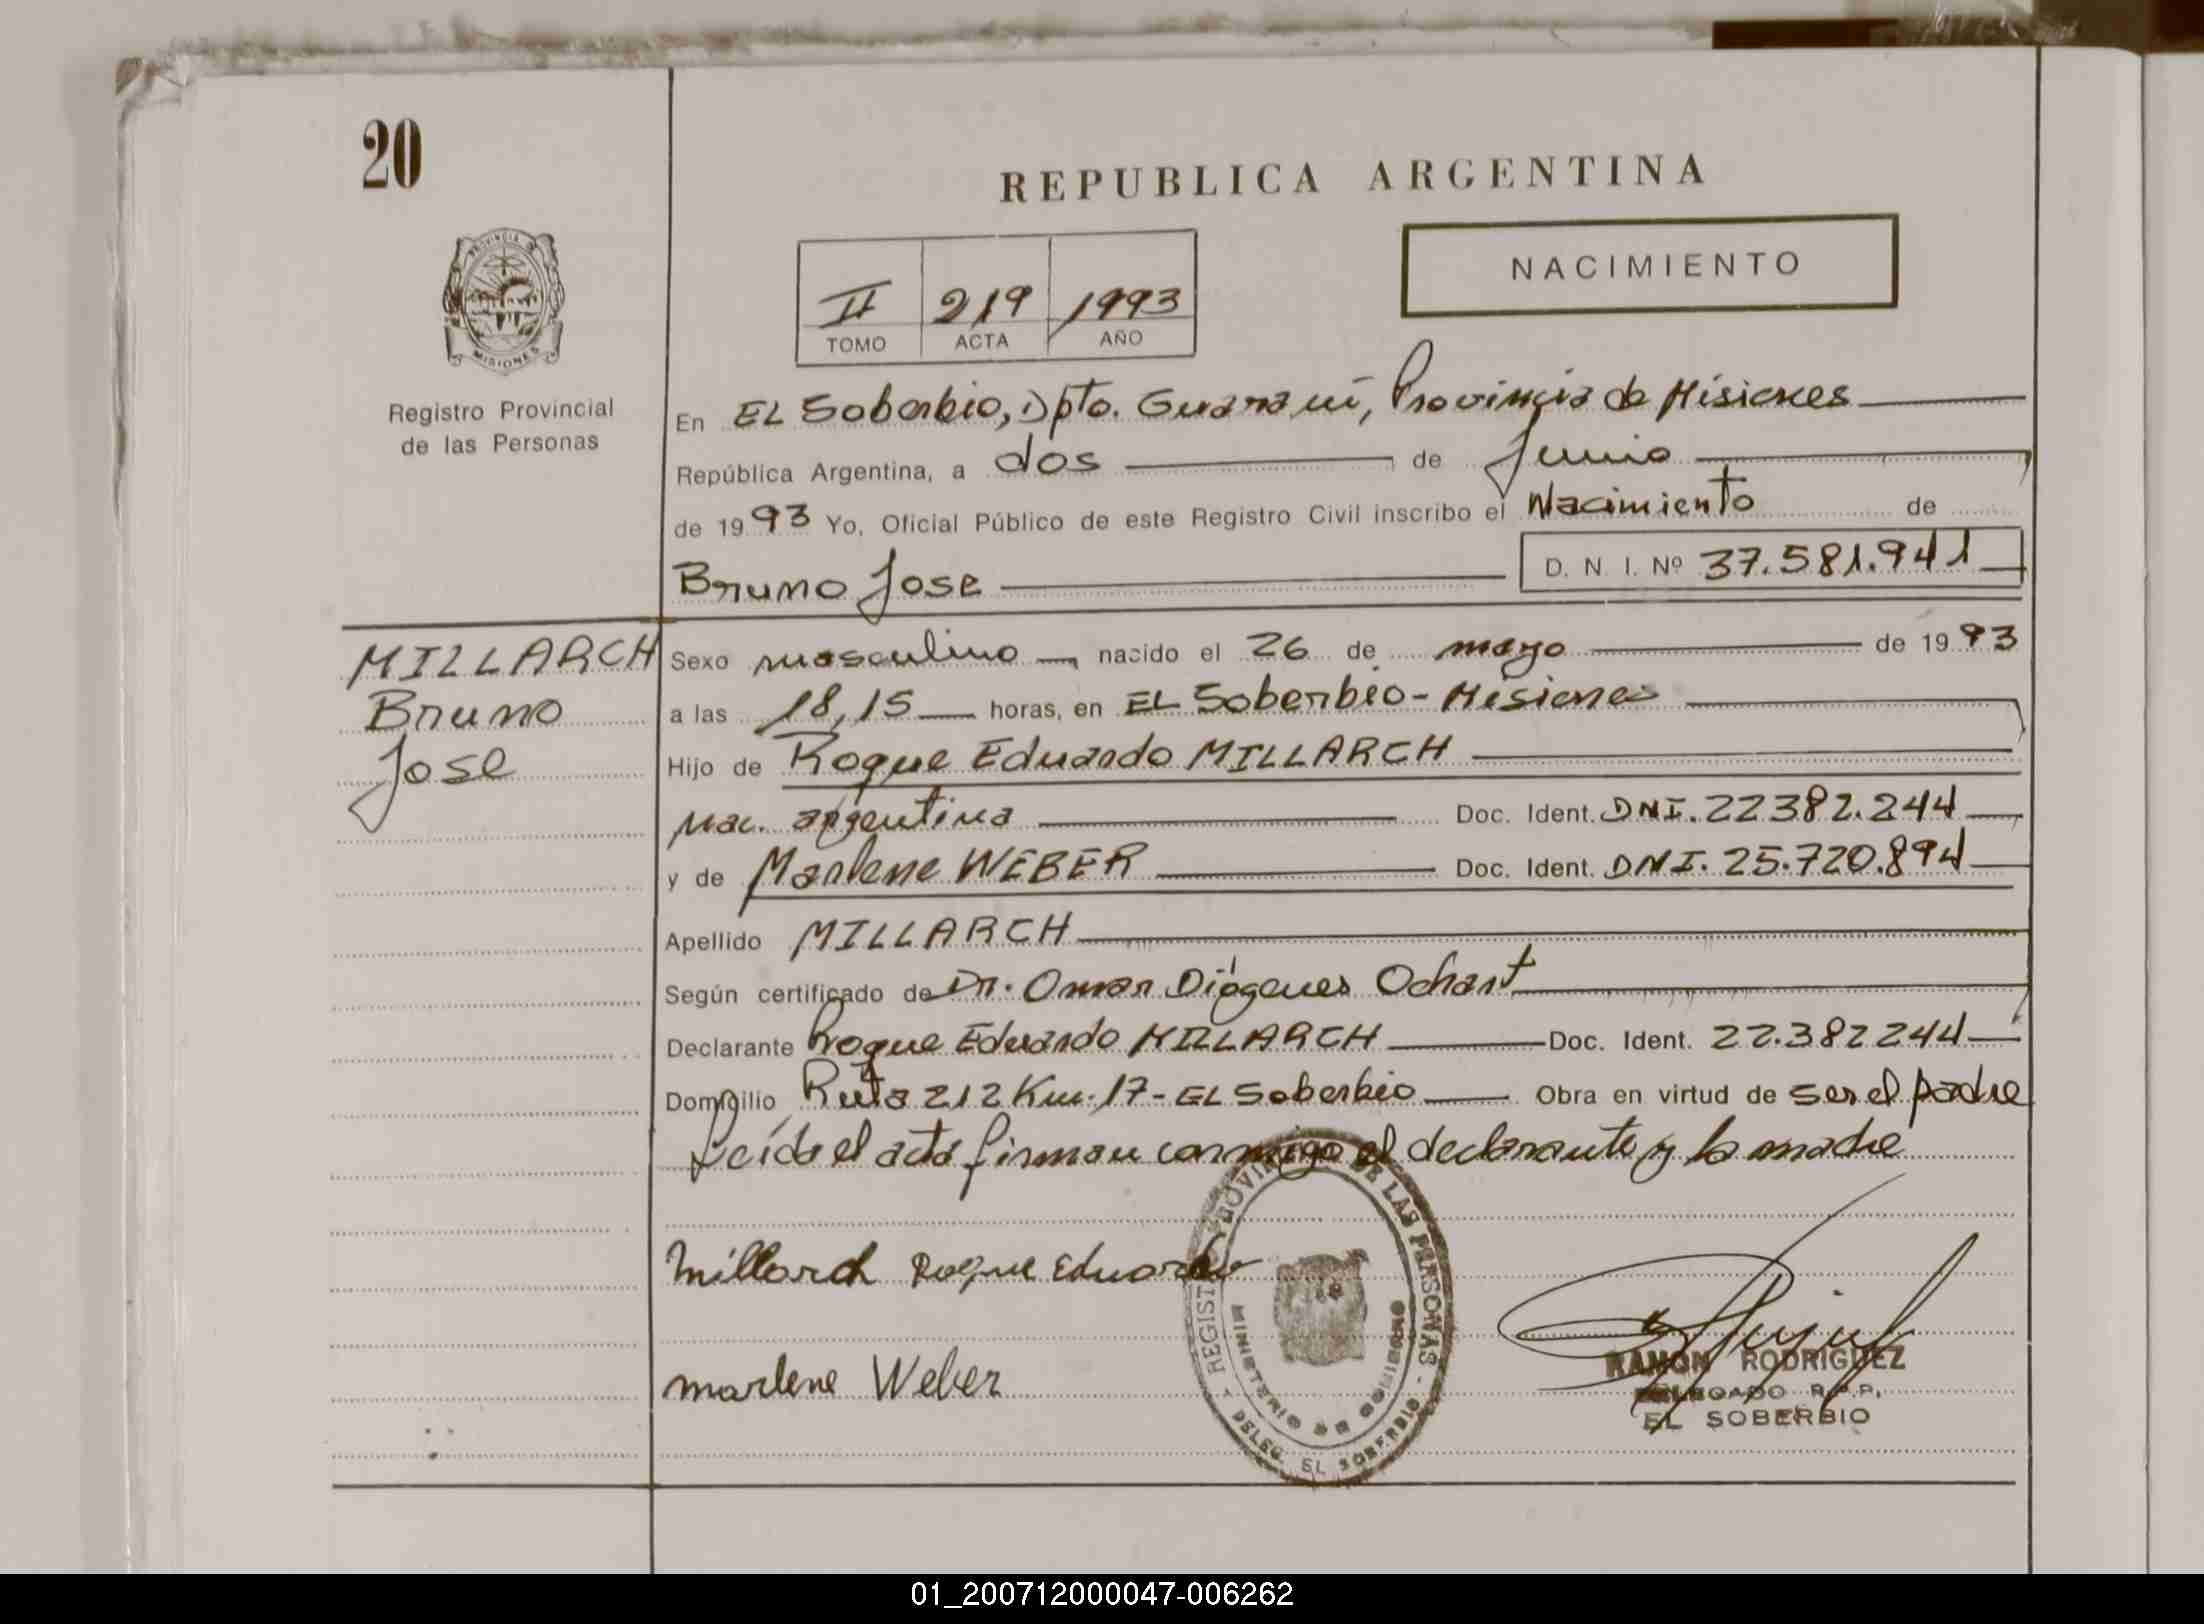 20
REPUBLICA ARGENTINA
NACIMIENTO
II 219 1993
TOMO ACTA AÑO
PROVINCIA DE
MISIONES
Registro Provincial
de las Personas
En EL Soberbio, Dpto. Guaraní, Provincia de Misiones
República Argentina, a dos de Junio
de 1993 Yo, Oficial Público de este Registro Civil inscribo el Nacimiento de
Bruno Jose D. N. I. Nº 37.581.941
MILLARCH
Bruno
Jose
Sexo masculino nacido el 26 de mayo de 1993
a las 18,15 horas, en EL Soberbio - Misiones
Hijo de Roque Eduardo MILLARCH
nac. argentina Doc. Ident. DNI. 22382.244
y de Marlene WEBER Doc. Ident. DNI. 25.720.894
Apellido MILLARCH
Según certificado de Dr. Omar Diógenes Ochart
Declarante Roque Eduardo MILLARCH Doc. Ident. 22.382244
Domicilio Ruta 212 Km. 17 - EL Soberbio Obra en virtud de ser el padre
Leída el acta firman conmigo el declarante y la madre
Millarch Roque Eduardo
marlene Weber
REGISTRO PROVINCIAL DE LAS PERSONAS
MINISTERIO DE GOBIERNO
DELEG. EL SOBERBIO
RAMON RODRIGUEZ
DELEGADO R.P.P.
EL SOBERBIO
01_200712000047-006262